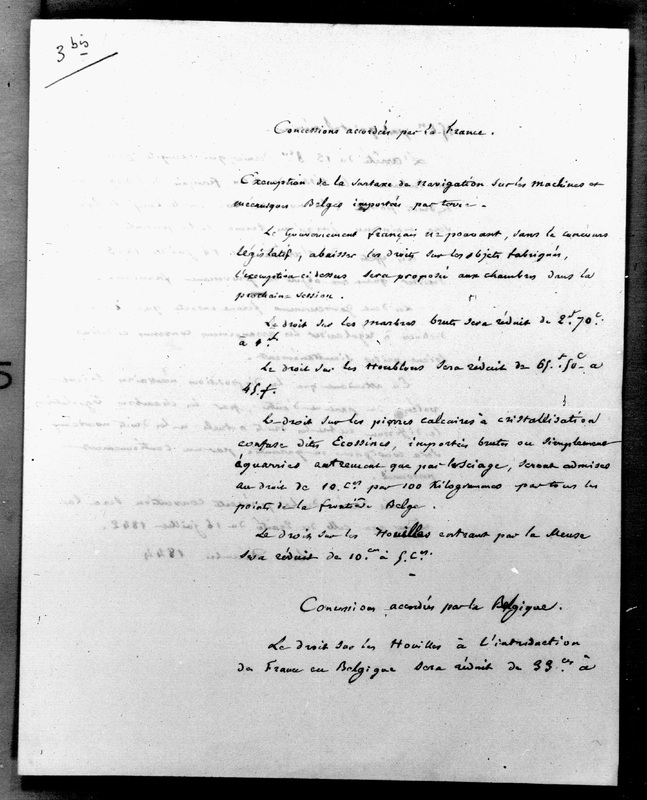 3 bis
Concessions accordées par la France.
Exemption de la surtaxe de navigation sur les machines et
mécaniques Belges importées par terre.
Le Gouvernement français ne pouvant, sans le concours
législatif, abaisser les droits sur les objets fabriqués,
l'exemption ci dessus sera proposée aux chambres dans la
prochaine session.
Le droit sur les marbres bruts sera réduit de 2f. 70c.
à 1f
Le droit sur les Houblons sera réduit de 65f. 50c a
45f.
Le droit sur les pierres calcaires à cristallisation
confuse dites Ecossines, importées brutes ou simplement
équarries autrement que par le sciage, seront admises
au droit de 10. Ces par 100 Kilogrammes par tous les
points de la frontière Belge.
Le droit sur les Houilles entrant par la Meuse
sera réduit de 10 ces à 5. Ces.
Concessions accordées par la Belgique.
Le droit sur les Houilles à l'introduction
de France en Belgique sera réduit de 33 ces à
5